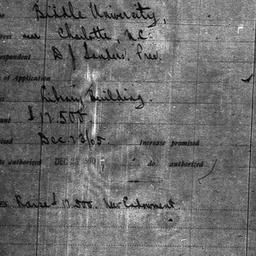 Biddle University,
near Charlotte, N.C.
D J Sanders, Pres.
of Application
Library Building.
$12.500.
Dec. 23/05. Increase promised
authorized DEC do authorized
Raise $12,500. New Endowment